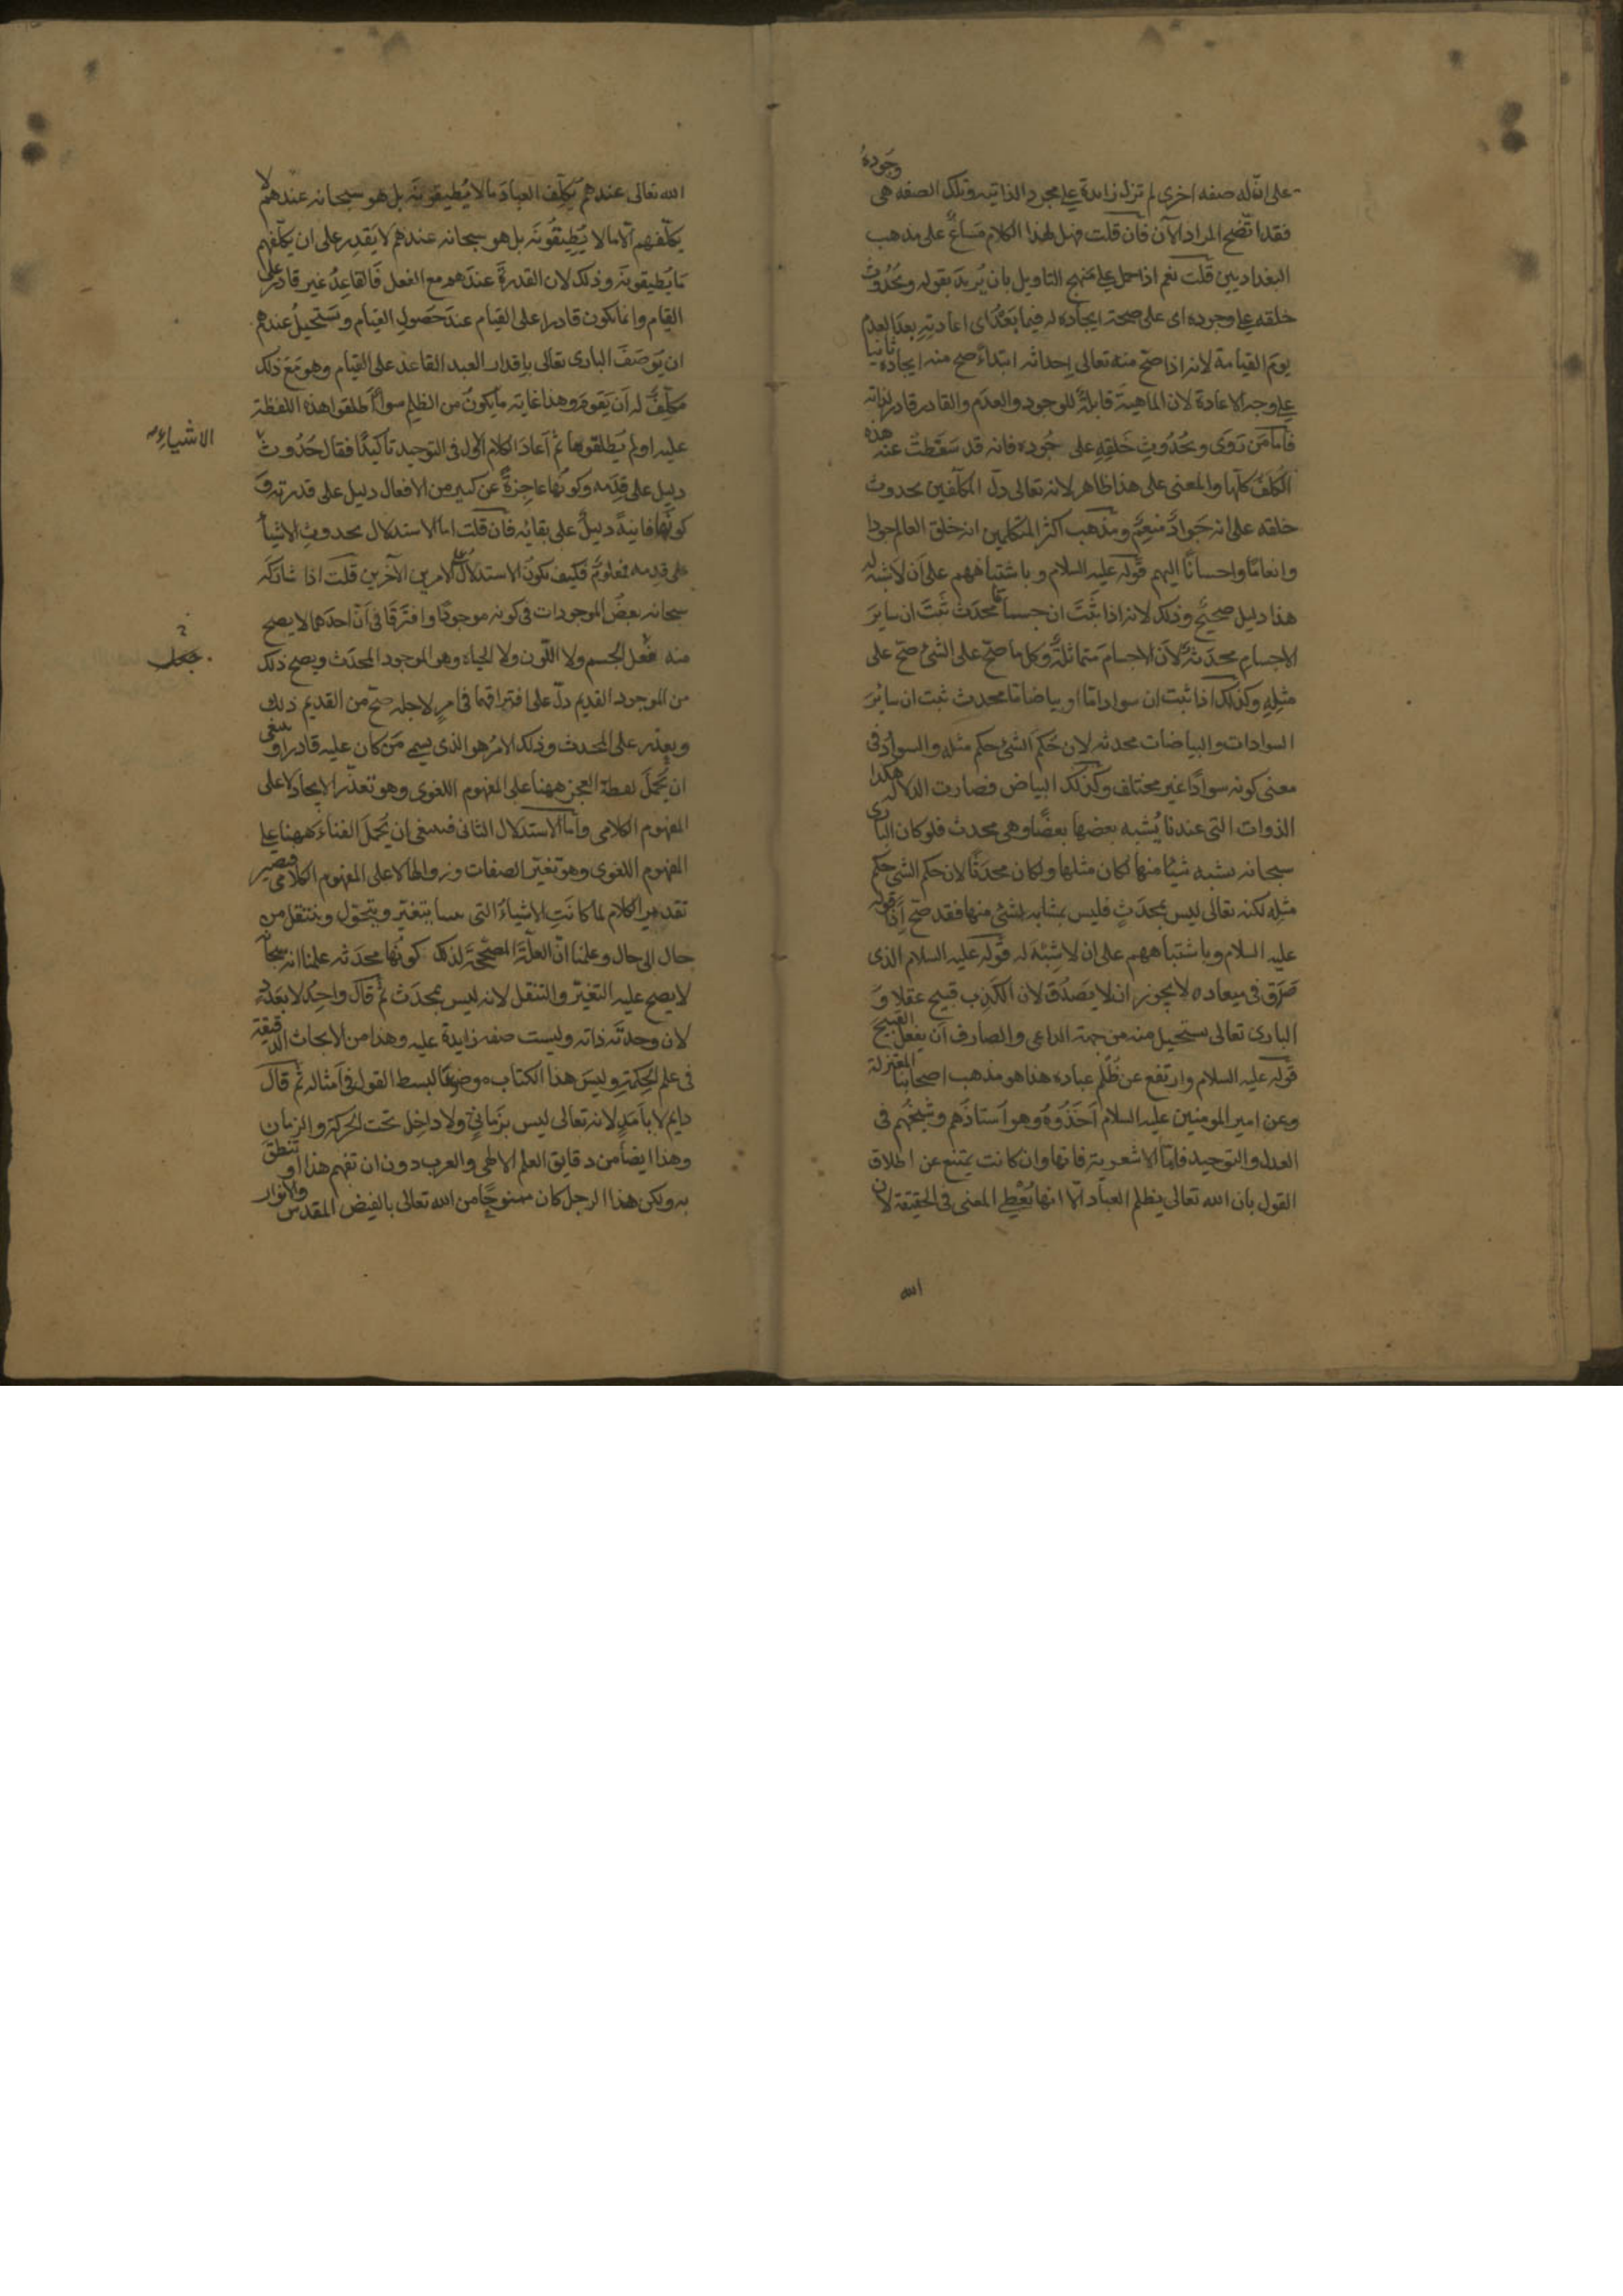 على ان له صفه اخرى لم تزل زايدة على مجرد الذاتيه وتلك الصفه هى وجوده
فقد اتضح المراد الآن فان قلت فهل لهذا الكلام مساغ على مذهب
البغداديين قلت نعم اذا حمل على منهج التاويل بان يريد بقوله وبحدوث
خلقه على وجوده اى على صحة ايجاده له فيما بعد اى اعادته بعد العدم
يوم القيامة لانه اذا صح منه تعالى احداثه ابتداء صح منه ايجاده ثانيا
على وجه الاعادة لان الماهية قابلة للوجود والعدم والقادر قادر لذاته
فاما من روى وبحدوث خلقه على جوده فانه قد سقطت عنه هذه
الكلف كلها والمعنى على هذا ظاهر لانه تعالى دل المكلفين بحدوث
خلقه على انه جواد منعم ومذهب اكثر المتكلمين انه خلق العالم جودا
وانعاما واحسانا اليهم قوله عليه السلام وباشتباههم على ان لا شبه له
هذا دليل صحيح وذلك لانه اذا ثبت ان جسما ما محدث ثبت ان ساير
الاجسام محدثة لان الاجسام متماثلة وكل ما صح على الشئ صح على
مثله وكذلك اذا ثبت ان سوادا ما او بياضا ما محدث ثبت ان سائر
السوادات والبياضات محدثه لان حكم الشئ حكم مثله والسواد فى
معنى كونه سوادا غير مختلف وكذلك البياض فصارت الدلاله هكذا
الذوات التى عندنا يشبه بعضها بعضا وهى محدث فلو كان البارى
سبحانه يشبه شيئا منها لكان مثلها ولكان محدثا لان حكم الشئ حكم
مثله لكنه تعالى ليس بمحدث فليس بمشابه لشئ منها فقد صح اذا قوله
عليه السلام وباشتباههم على ان لا شبه له قوله عليه السلام الذى
صدق فى ميعاده لا يجوز ان لا يصدق لان الكذب قبيح عقلا و
البارى تعالى يستحيل منه من جهة الداعى والصارف ان يفعل القبيح
قوله عليه السلام وارتفع عن ظلم عباده هذا هو مذهب اصحابنا المعتزلة
وعن امير المومنين عليه السلام اخذوه وهو استاذهم وشيخهم فى
العدل والتوحيد فاما الاشعرية فانها وان كانت يمتنع عن اطلاق
القول بان الله تعالى يظلم العباد الا انها تعطى المعنى فى الحقيقة لان
الله
الله تعالى عندهم يكلف العباد ما لا يطيقونه بل هو سبحانه عندهم لا
يكلفهم الا ما لا يطيقونه بل هو سبحانه عندهم لا يقدر على ان يكلفهم
ما يطيقونه وذلك لان القدرة عندهم مع الفعل فالقاعد غير قادر على
القيام وانما يكون قادرا على القيام عند حصول القيام ويستحيل عندهم
ان يوصف البارى تعالى باقدار العبد القاعد على القيام وهو مع ذلك
مكلف له ان يقوم وهذا غاية ما يكون من الظلم سواء اطلقوا هذه اللفظة
عليه او لم يطلقوها ثم اعاد الكلام الاول فى التوحيد تاكيدا فقال حدوث
الاشياء
دليل على قدمه وكونها عاجزة عن كثير من الافعال دليل على قدرته و
كونها فانية دليل على بقائه فان قلت اما الاستدلال بحدوث الاشياء
على قدمه فمعلوم فكيف يكون الاستدلال على الامرين الآخرين قلت اذا شاركه
سبحانه بعض الموجودات فى كونه موجودا وافترقا فى ان احدهما لا يصح
منه فعل الجسم ولا اللون ولا الحياة وهو الموجود المحدث ويصح ذلك
من الموجود القديم دل على افتراقهما فى امر لاجله صح من القديم ذلك
وتعذر على المحدث وذلك الامر هو الذى يسمى من كان عليه قادرا وينبغى
ان يحمل لفظة العجز ههنا على المفهوم اللغوى وهو تعذر الايجاد لا على
المفهوم الكلامى واما الاستدلال الثانى فينبغى ان يحمل الفناء ههنا على
المفهوم اللغوى وهو تغير الصفات وزوالها لا على المفهوم الكلامى فيصير
تقدير الكلام لما كانت الاشياء التى بيننا يتغير ويتحول وينتقل من
حال الى حال وعلمنا ان العلة المصححة لذلك كونها محدثه علمنا انه سبحانه
لا يصح عليه التغير والتنقل لانه ليس بمحدث ثم قال واحد لا بعدد
لان وحدته ذاته وليست صفه زايدة عليه وهذا من الابحاث الدقيقة
فى علم الحكمة وليس هذا الكتاب موضوعا لبسط القول فى امثاله ثم قال
دايم لا بامد لانه تعالى ليس بزمانى ولا داخل تحت الحركة والزمان
وهذا ايضا من دقايق العلم الالهى والعرب دون ان تفهم هذا او تنطق
به ولكن هذا الرجل كان ممنوحا من الله تعالى بالفيض المقدس والانوار